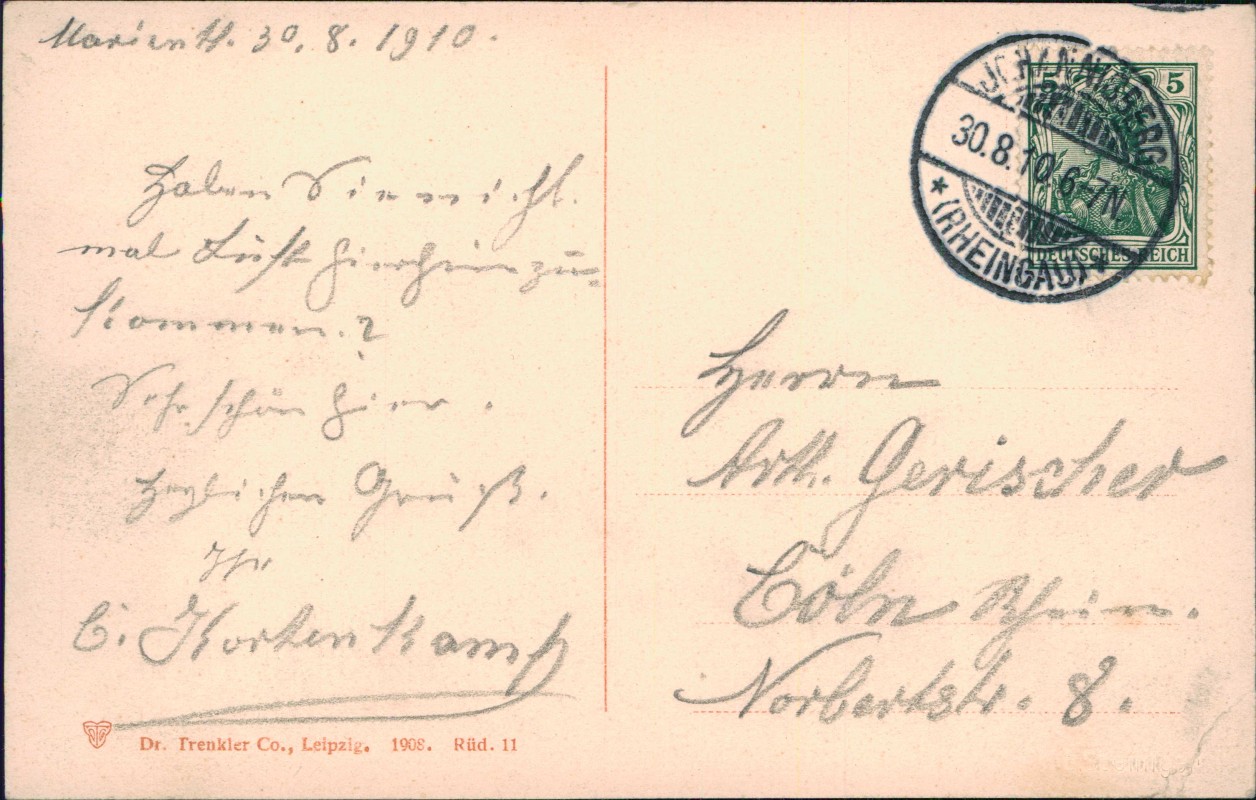 Marienth. 30.8.1910.
Haben Sie nicht
mal Lust hierhin zu
kommen.?
Sehr schön hier.
Herzlichen Gruß.
Ihr
C. Kortenkamp
Dr. Trenkler Co., Leipzig. 1908. Rüd. 11
JOHANNISBERG
30.8.10. 6-7N
* (RHEINGAU) *
5 5
DEUTSCHES REICH
Herrn
Arth. Gerischer
Cöln Rhein.
Norbertstr. 8.